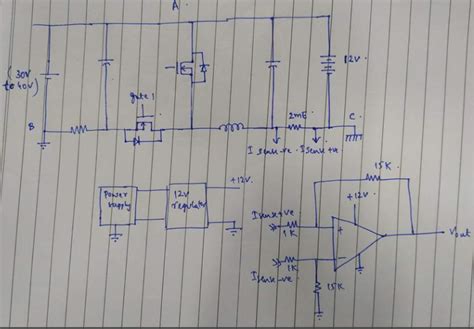 A
(30V
to 40V)
12V
gate 1
B
2mE
C
I sense-ve
I sense+ve
15K
+12V
+12V
Power
supply
12V
regulator
I sense+ve
1K
+
Vout
-
1K
I sense-ve
15K